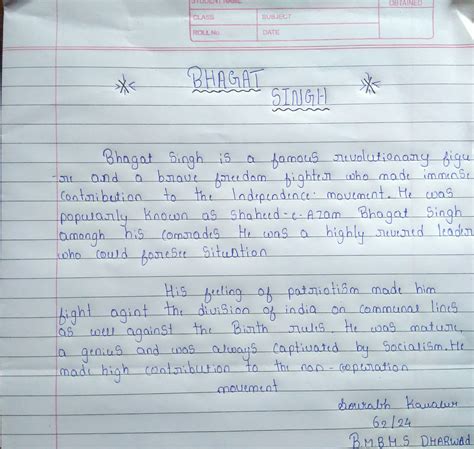 STUDENT NAME
OBTAINED
CLASS SUBJECT
ROLL No DATE
BHAGAT
SINGH
Bhagat Singh is a famous revolutionary figu
re and a brave freedom fighter who made immense
contribution to the Independence movement. He was
popularly known as Shaheed-e-Azam Bhagat Singh
amongh his comrades He was a highly revered leader
who could foresee situation
His feeling of patriotism made him
fight agint the division of india on communal lines
as well against the Birth rules. He was mature,
a genius and was always captivated by Socialism. He
made high contribution to the non-coperation
movement
Sourabh
62/24
B.M.B.M.S DHARWAD